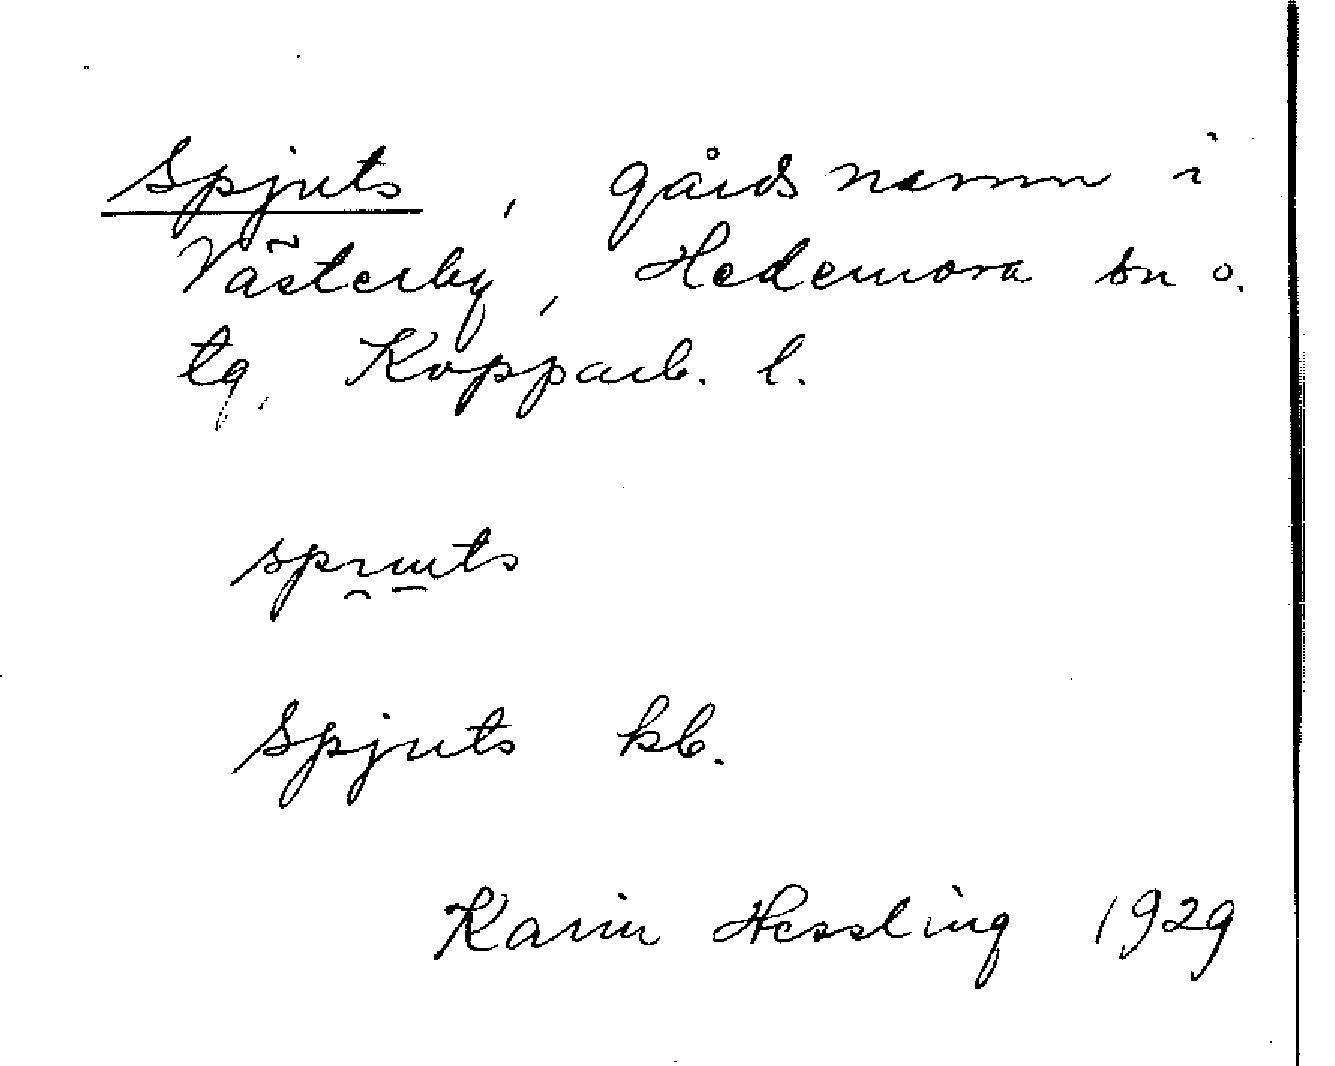 Spjuts, gårdsnamn i
Västerby, Hedemora sn o.
tg, Kopparb. l.
spı̯u̱ts
Spjuts kb.
Karin Hessling 1929